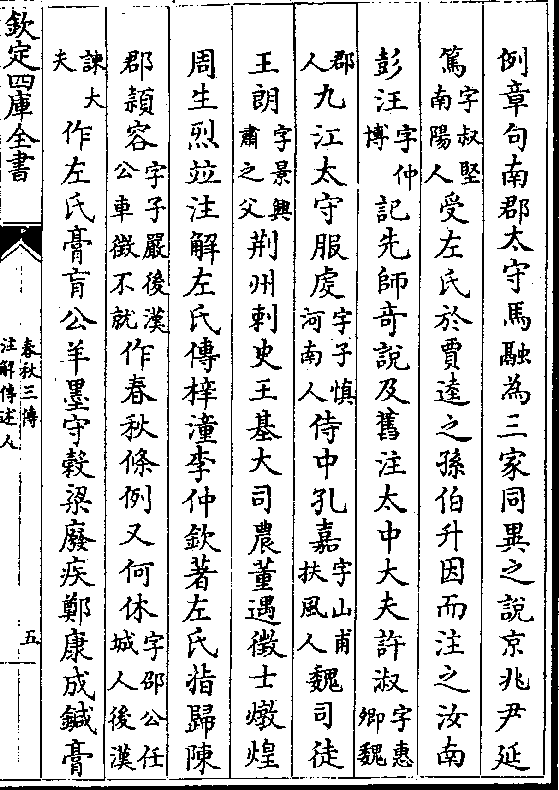 例章句南郡太守馬融為三家同異之說京兆尹延
篤字叔堅南陽人受左氏於賈逵之孫伯升因而注之汝南
彭汪字仲博記先師奇說及舊注太中大夫許淑字惠卿魏
郡人九江太守服虔字子慎河南人侍中孔嘉字山甫扶風人魏司徒
王朗字景興肅之父荆州刺史王基大司農董遇徵士燉煌
周生烈並注解左氏傳梓潼李仲欽著左氏指歸陳
郡潁容字子嚴後漢公車徵不就作春秋條例又何休字邵公任城人後漢
諫大夫作左氏膏肓公羊墨守榖梁廢疾鄭康成鍼膏
欽定四庫全書
春秋三傳注解傳述人
五